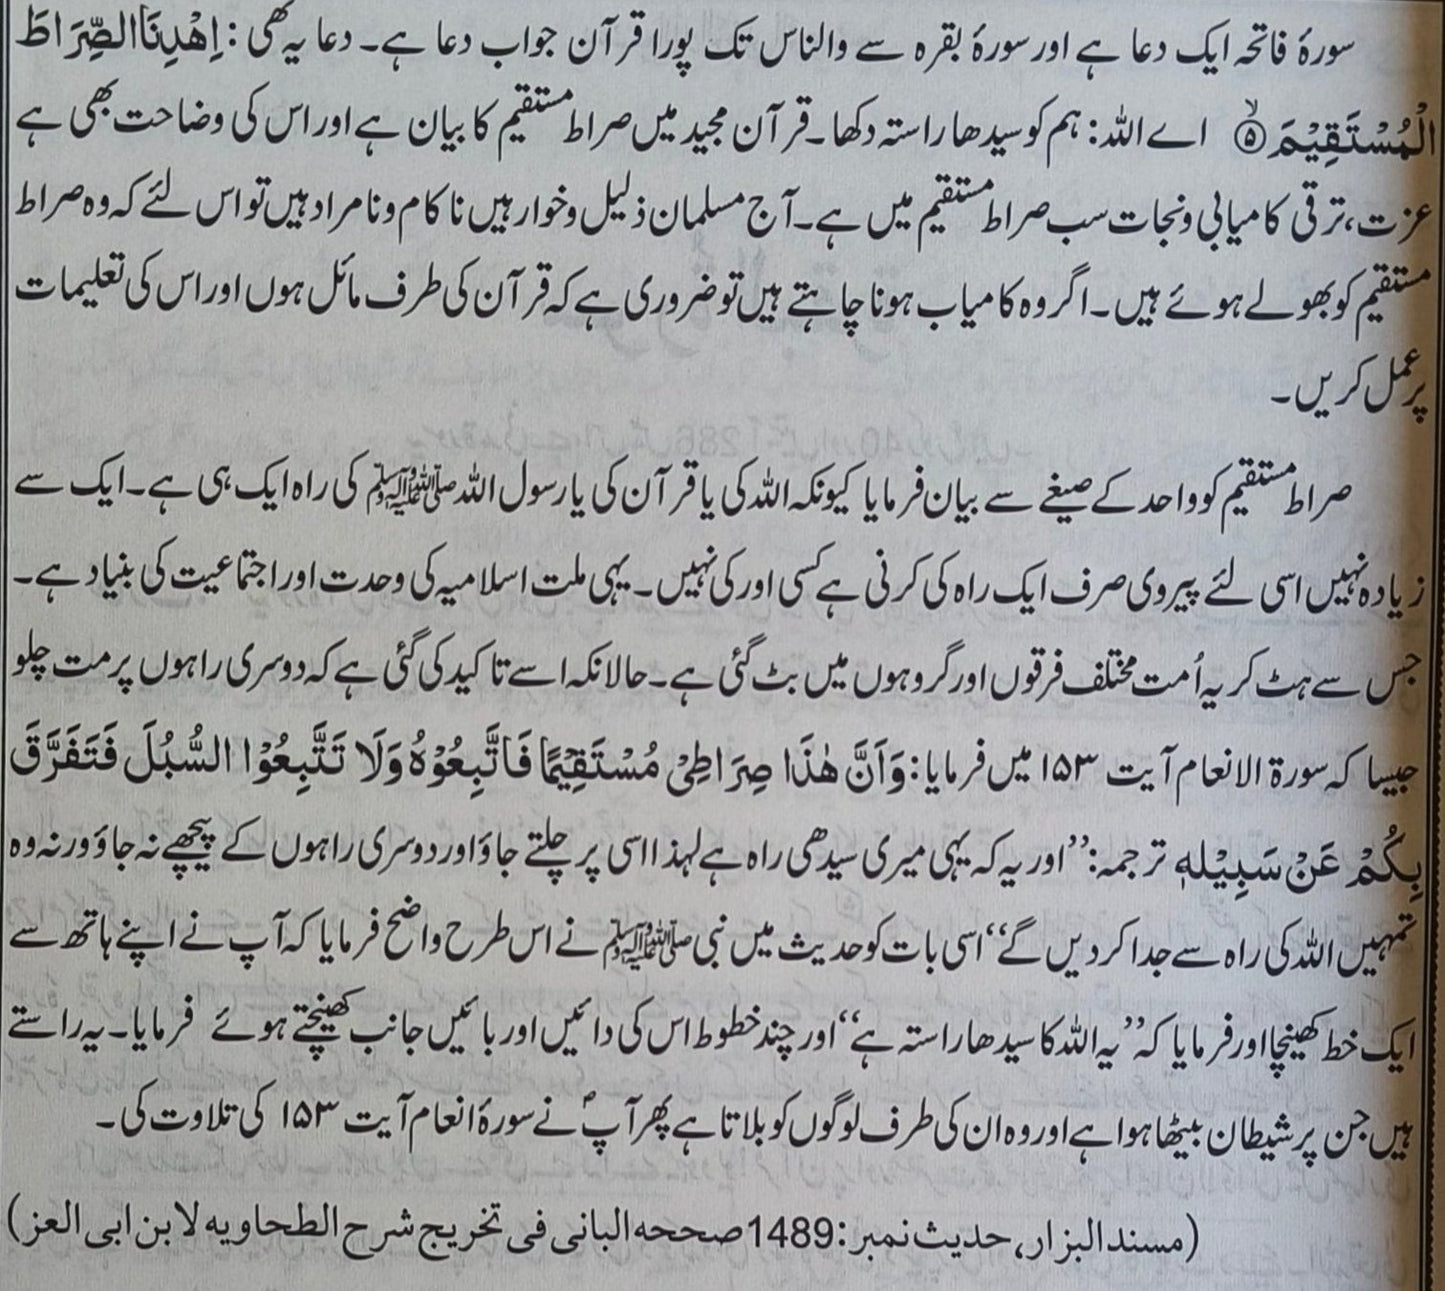 سورۂ فاتحہ ایک دعا ہے اور سورۂ بقرہ سے والناس تک پورا قرآن جواب دعا ہے۔ دعا یہ تھی: اِهْدِنَا الصِّرَاطَ
الْمُسْتَقِيْمَ ۙ﴿۵﴾ اے اللہ: ہم کو سیدھا راستہ دکھا۔ قرآن مجید میں صراط مستقیم کا بیان ہے اور اس کی وضاحت بھی ہے
عزت، ترقی کامیابی ونجات سب صراط مستقیم میں ہے۔ آج مسلمان ذلیل وخوار ہیں ناکام ونامراد ہیں تو اس لئے کہ وہ صراط
مستقیم کو بھولے ہوئے ہیں۔ اگر وہ کامیاب ہونا چاہتے ہیں تو ضروری ہے کہ قرآن کی طرف مائل ہوں اور اس کی تعلیمات
پر عمل کریں۔
صراط مستقیم کو واحد کے صیغے سے بیان فرمایا کیونکہ اللہ کی یا قرآن کی یا رسول اللہ ﷺ کی راہ ایک ہی ہے۔ ایک سے
زیادہ نہیں اسی لئے پیروی صرف ایک راہ کی کرنی ہے کسی اور کی نہیں۔ یہی ملت اسلامیہ کی وحدت اور اجتماعیت کی بنیاد ہے۔
جس سے ہٹ کر یہ اُمت مختلف فرقوں اور گروہوں میں بٹ گئی ہے۔ حالانکہ اسے تاکید کی گئی ہے کہ دوسری راہوں پر مت چلو
جیسا کہ سورۃ الانعام آیت ۱۵۳ میں فرمایا: وَاَنَّ هٰذَا صِرَاطِيْ مُسْتَقِيْمًا فَاتَّبِعُوْهُ وَلَا تَتَّبِعُوْا السُّبُلَ فَتَفَرَّقَ
بِكُمْ عَنْ سَبِيْلِهٖ ترجمہ: ”اور یہ کہ یہی میری سیدھی راہ ہے لہذا اسی پر چلتے جاؤ اور دوسری راہوں کے پیچھے نہ جاؤ ورنہ وہ
تمہیں اللہ کی راہ سے جدا کر دیں گے“ اسی بات کو حدیث میں نبی ﷺ نے اس طرح واضح فرمایا کہ آپ نے اپنے ہاتھ سے
ایک خط کھینچا اور فرمایا کہ ”یہ اللہ کا سیدھا راستہ ہے“ اور چند خطوط اس کی دائیں اور بائیں جانب کھینچتے ہوئے فرمایا۔ یہ راستے
ہیں جن پر شیطان بیٹھا ہوا ہے اور وہ ان کی طرف لوگوں کو بلاتا ہے پھر آپؐ نے سورۂ انعام آیت ۱۵۳ کی تلاوت کی۔
(مسند البزار، حدیث نمبر: 1489 صححہ البانی فی تخریج شرح الطحاویہ لابن ابی العز)